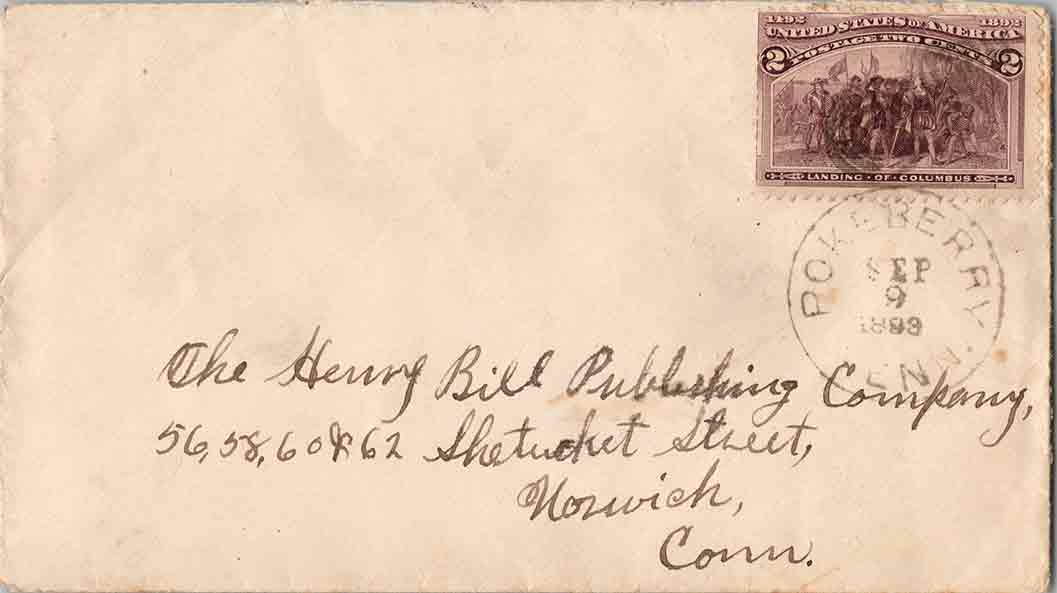 1492 1892
UNITED STATES OF AMERICA
POSTAGE TWO CENTS
2 2
LANDING · OF · COLUMBUS
POKEBERRY
SEP
9
1893
ENN.
The Henry Bill Publishing Company,
56, 58, 60 & 62 Shetucket Street,
Norwich,
Conn.